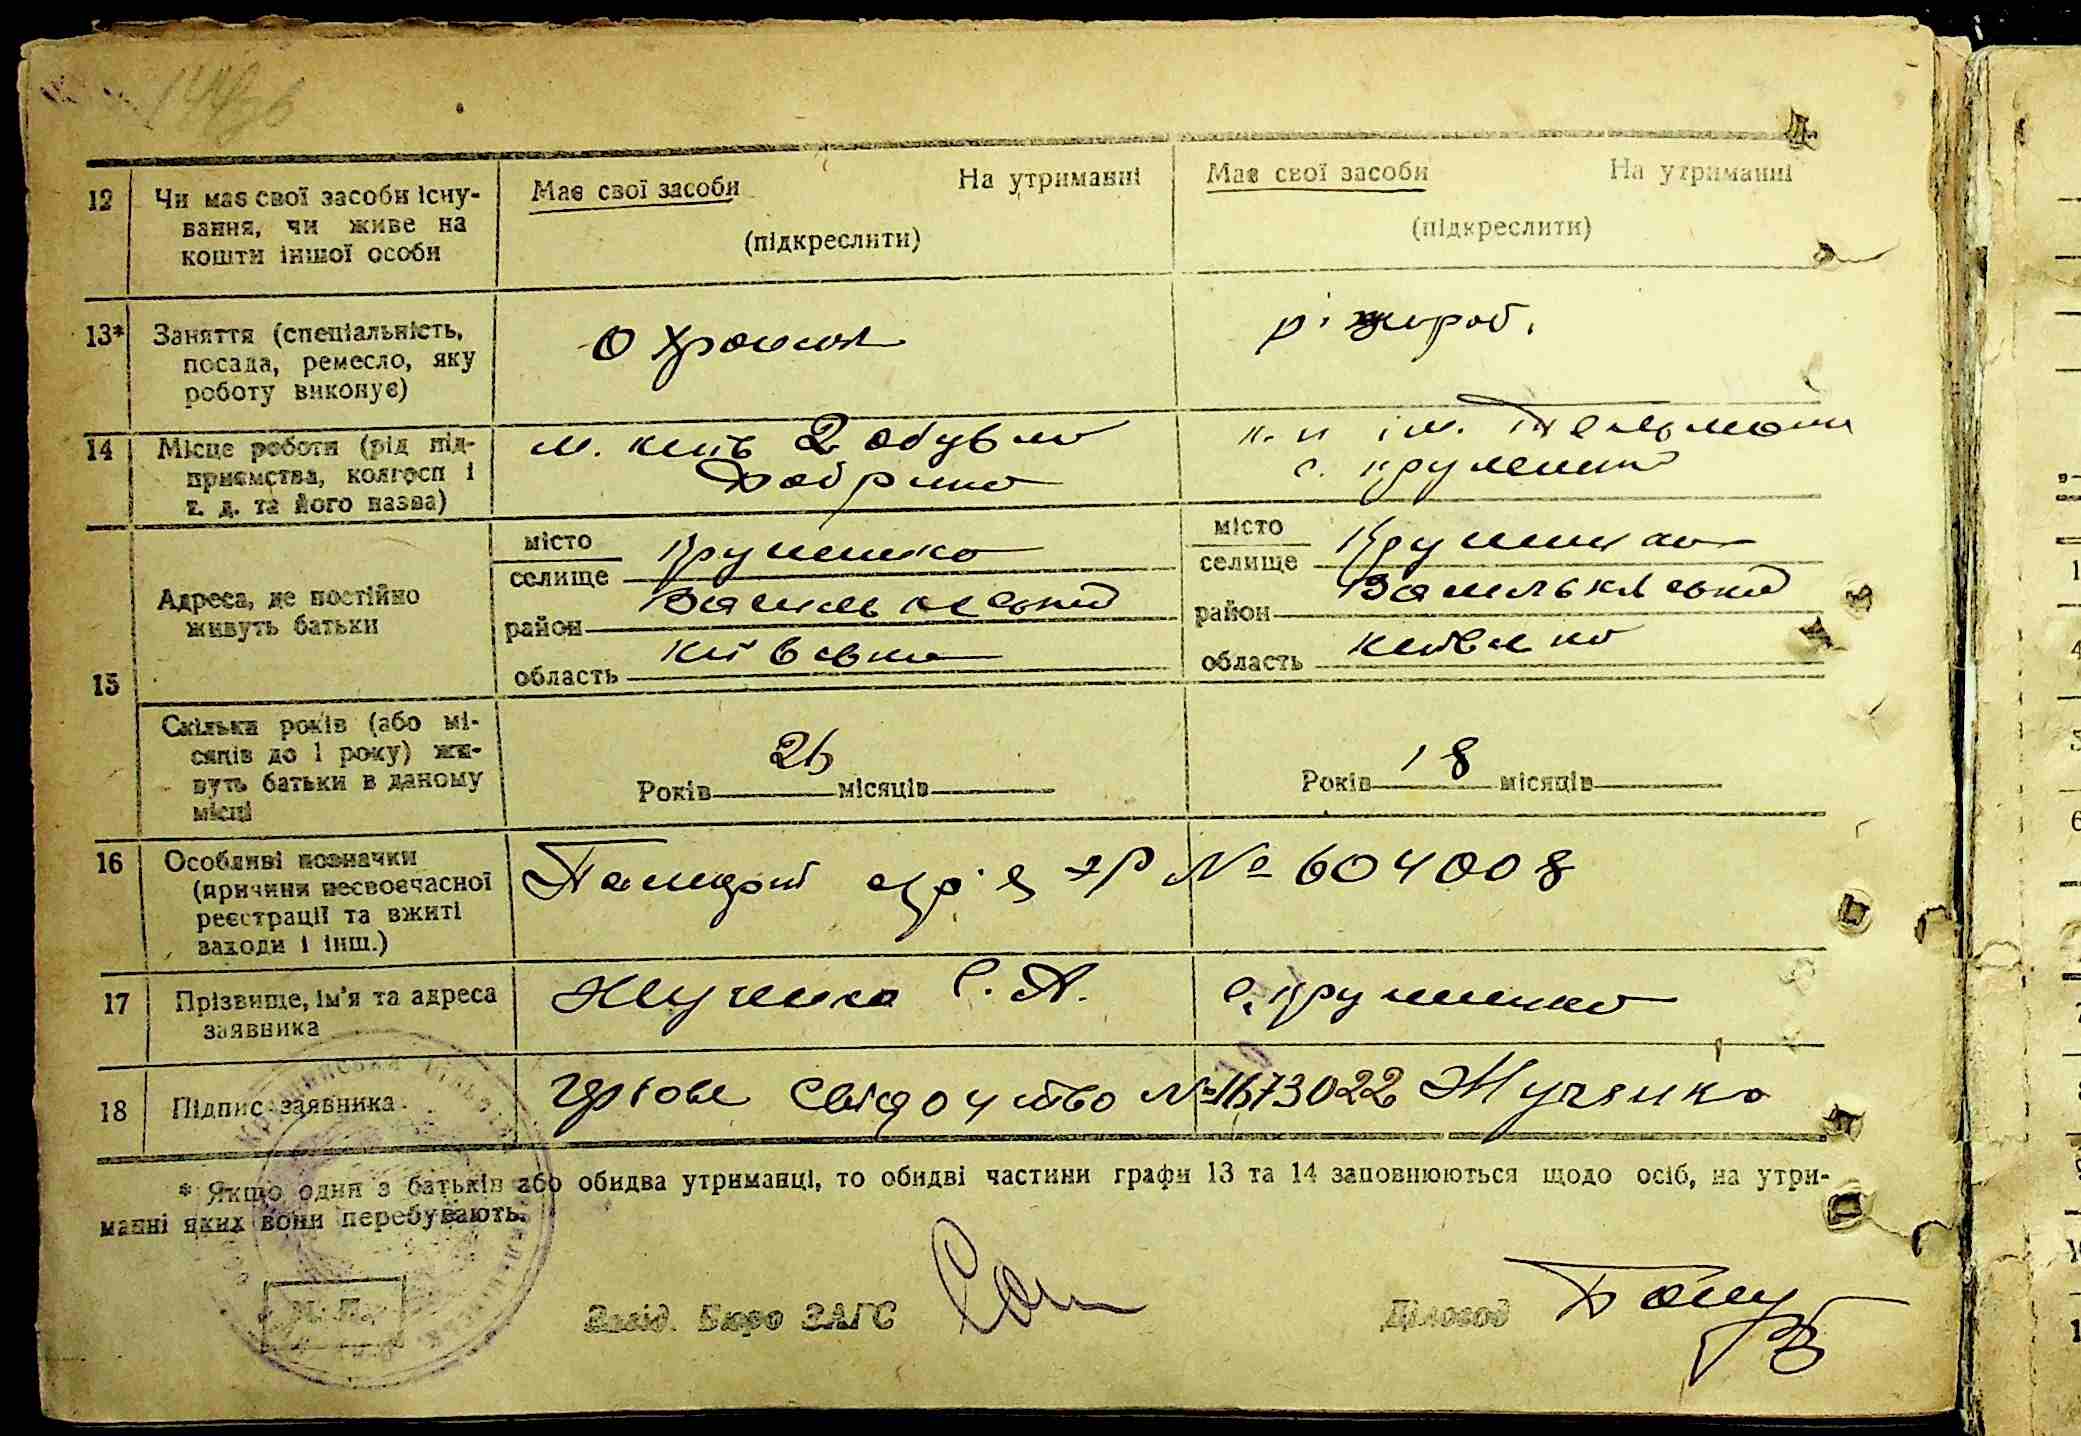 12 Чи має свої засоби існу-
вання, чи живе на
кошти іншої особи
Має свої засоби На утриманні
(підкреслити)
Має свої засоби На утриманні
(підкреслити)
13* Заняття (спеціальність,
посада, ремесло, яку
роботу виконує)
Охрана
14 Місце роботи (рід під-
приємства, колгосп і
т. д. та його назва)
м. київ 2 обувна
фабрика
ім. Тельмана
с.
15 Адреса, де постійно
живуть батьки
місто
селище Крушинка
район Васильківський
область київська
місто
селище Крушинка
район Васильківський
область київська
Скільки років (або мі-
сяців до 1 року) жи-
вуть батьки в даному
місці
Років 26 місяців
Років 18 місяців
16 Особливі позначки
(причини несвоєчасної
реєстрації та вжиті
заходи і інш.)
№ 604008
17 Прізвище, ім'я та адреса
заявника
Жученко С. А. с. Крушинка
18 Підпис заявника
свідоцтво № 1673022 Жученко
* Якщо один з батьків або обидва утриманці, то обидві частини графи 13 та 14 заповнюються щодо осіб, на утри-
манні яких вони перебувають.
М. П.
Завід. Бюро ЗАГС
Діловод